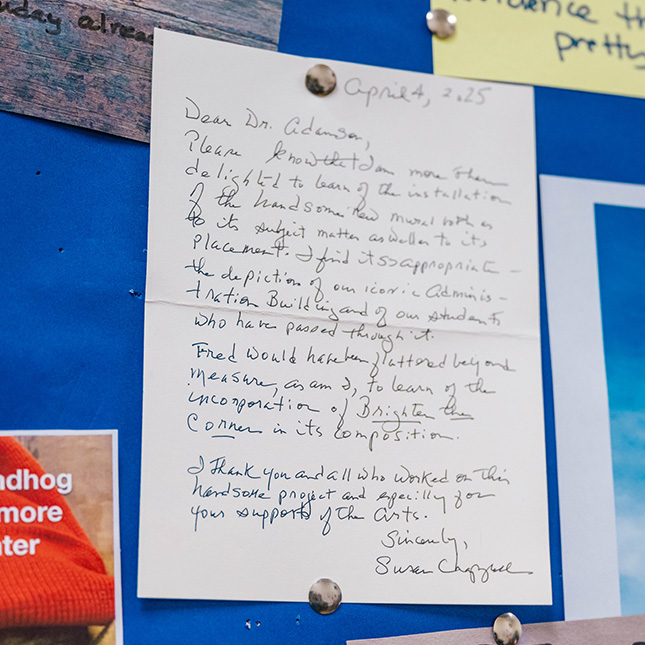 nday alrea
idence th
pretty
April 4, 2025
Dear Dr. Adamson,
Please know that I am more than
delighted to learn of the installation
of the handsome new mural both as
to its subject matter as well as to its
placement. I find it so appropriate -
the depiction of our iconic Adminis -
tration Building and of our students
who have passed through it.
Fred would have been flattered beyond
measure, as am I, to learn of the
incorporation of Brighten the
Corner in its composition.
I thank you and all who worked on this
handsome project and especilly for
your support of the arts.
Sincerely,
Susan
ndhog
more
ter